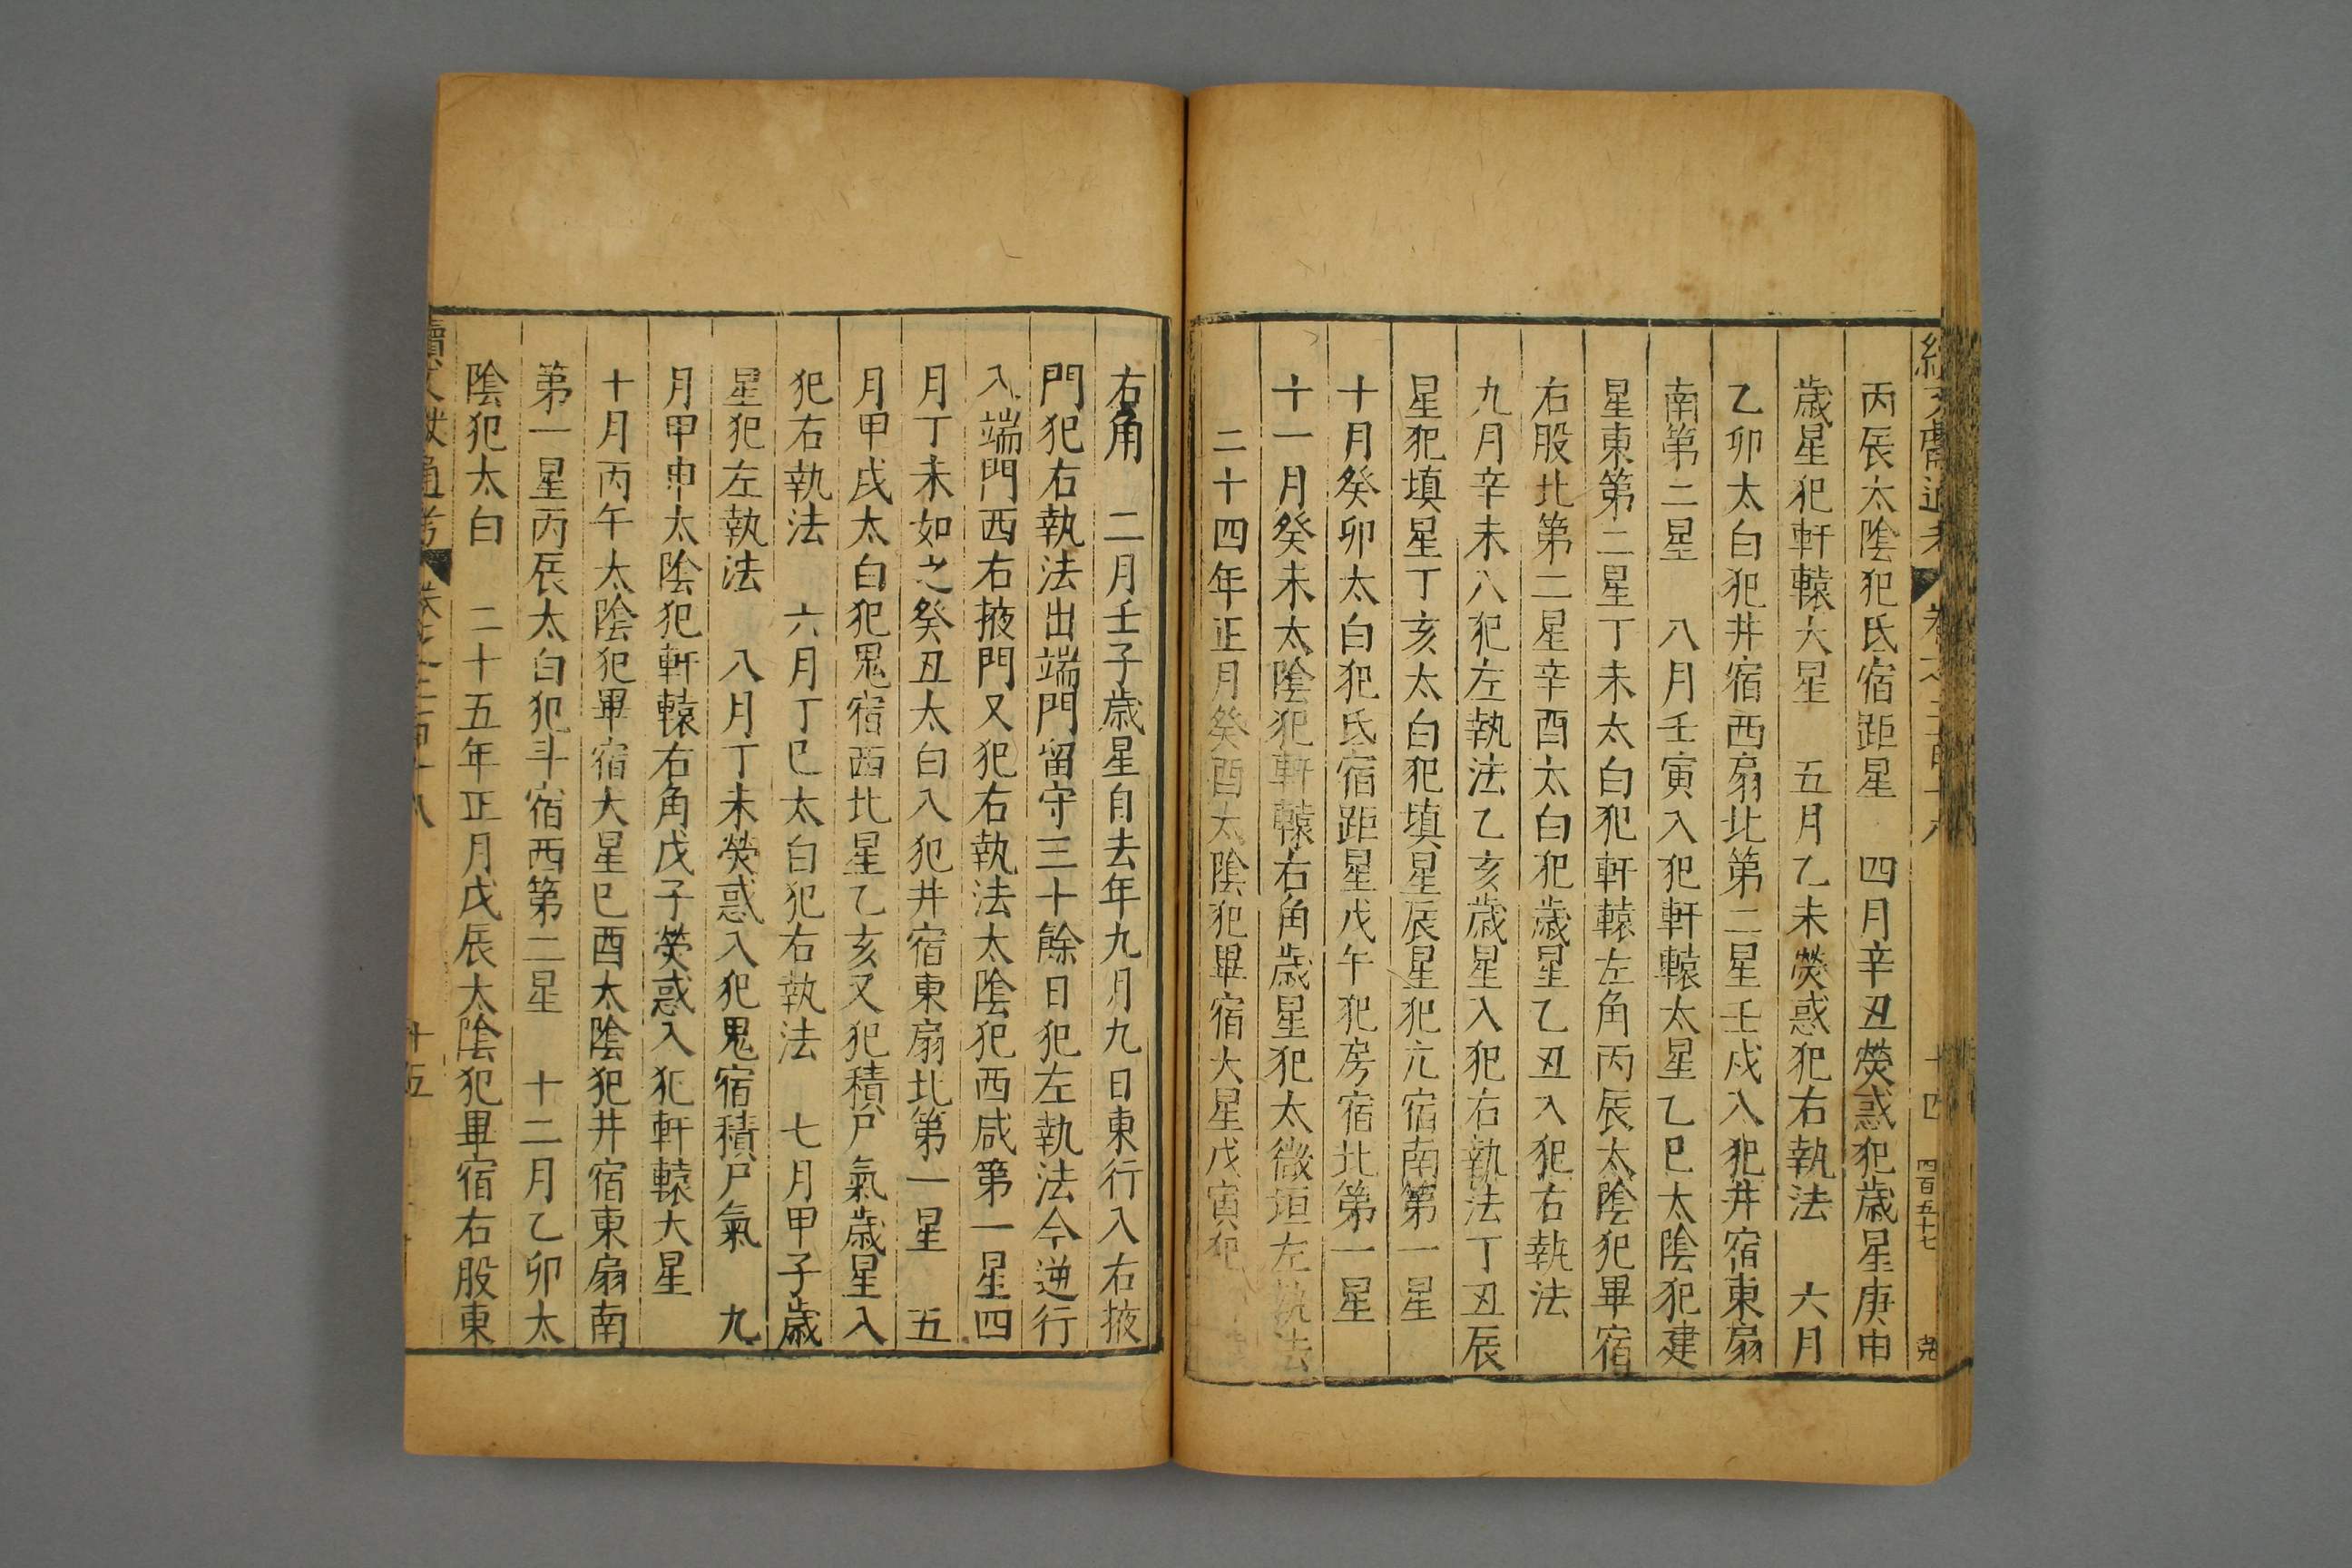 丙辰太陰犯氐宿距星　四月辛丑熒惑犯歲星庚申
歲星犯軒轅大星　五月乙未熒惑犯右執法　六月
乙卯太白犯井宿西扇北第二星壬戌入犯井宿東扇
南第二星　八月壬寅入犯軒轅太星乙巳太陰犯建
星東第二星丁未太白犯軒轅左角丙辰太陰犯畢宿
右股北第二星辛酉太白犯歲星乙丑入犯右執法
九月辛未八犯左執法乙亥歲星入犯右執法丁丑辰
星犯填星丁亥太白犯填星辰星犯亢宿南第一星
十月癸卯太白犯氐宿距星戊午犯房宿北第一星
十一月癸未太陰犯軒轅右角歲星犯太微垣左執法
二十四年正月癸酉太陰犯畢宿大星戊寅犯
十四
四百五十七
堯
右角　二月壬子歲星自去年九月九日東行入右掖
門犯右執法出端門留守三十餘日犯左執法今逆行
入端門西右掖門又犯右執法太陰犯西咸第一星四
月丁未如之癸丑太白入犯井宿東扇北第一星　五
月甲戌太白犯鬼宿西北星乙亥又犯積尸氣歲星入
犯右執法　六月丁巳太白犯右執法　七月甲子歲
星犯左執法　八月丁未熒惑入犯鬼宿積尸氣　九
月甲申太陰犯軒轅右角戊子熒惑入犯軒轅大星
十月丙午太陰犯畢宿大星巳酉太陰犯井宿東扇南
第一星丙辰太白犯斗宿西第二星　十二月乙卯太
陰犯太白　二十五年正月戊辰太陰犯畢宿右股東
續文獻通考
十五